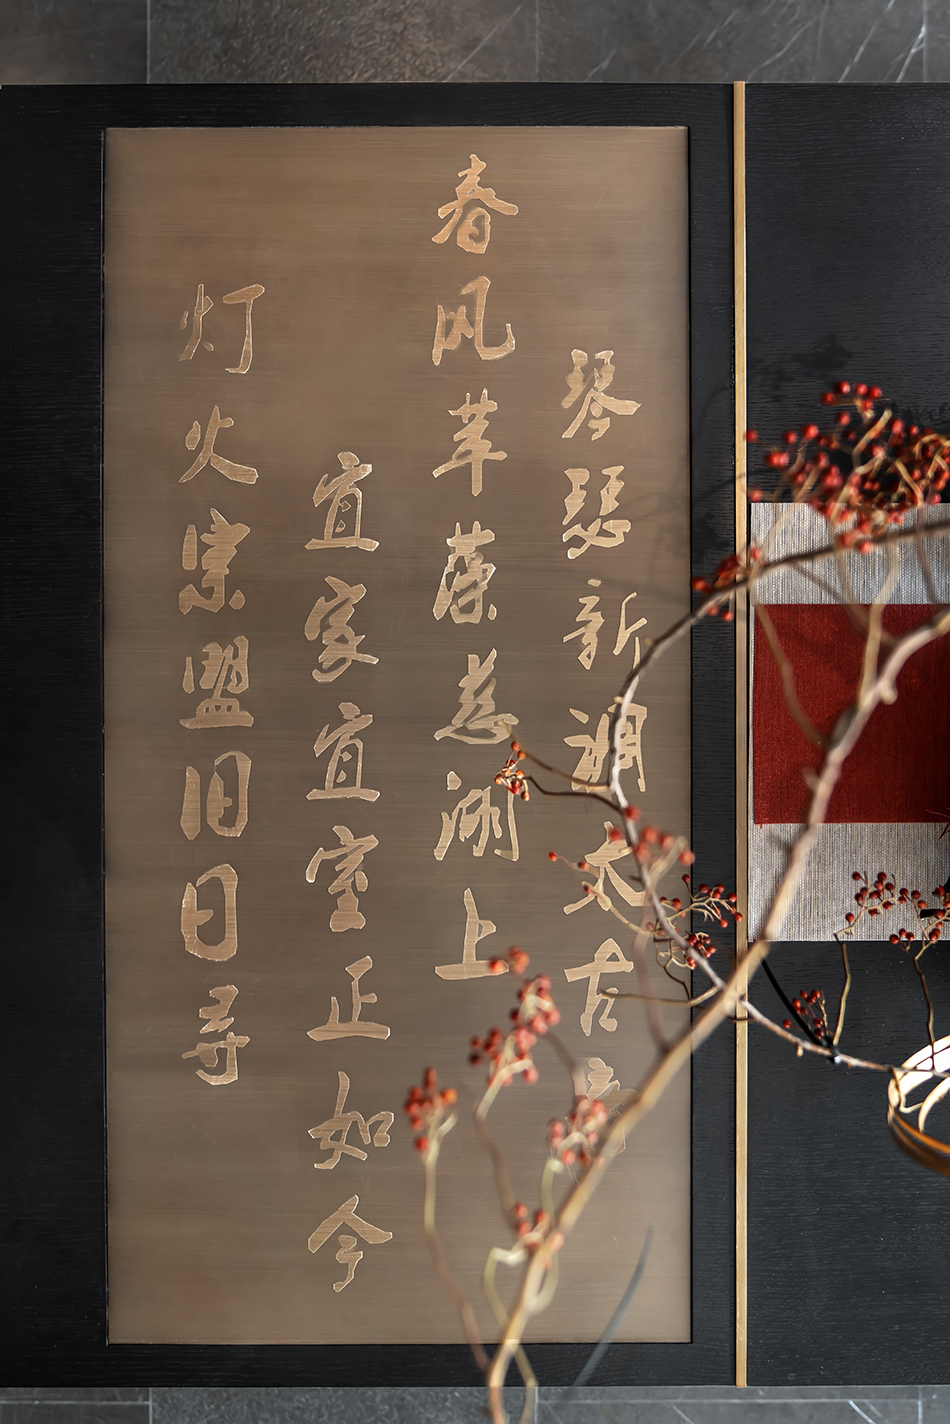 琴瑟新调太古
春风苹藻慈湖上
宜家宜室正如今
灯火宗盟旧日寻